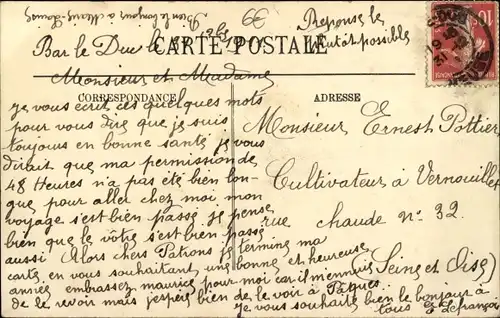 Bien le bonjour à Marie-Louise
66
Reponse le
plutôt possible
Bar le Duc le
CARTE POSTALE
Monsieur et Madame
CORRESPONDANCE
ADRESSE
je vous écrit ces quelques mots
pour vous dire que je suis
toujours en bonne santé je vous
dirait que ma permission de
48 Heures n'a pas été bien lon-
gue pour aller chez moi mon
voyage s'est bien passé je pense
bien que le vôtre s'est bien passé
aussi Alors chers Patrons je termine ma
carte en vous souhaitant une bonne et heureuse
année embrassez maurice pour moi car il m'ennuis
de le revoir mais j'espère bien de le voir à Pâques.
je vous souhaite bien le bonjour à
tous G Lefrançois
Monsieur Ernest Pottier
Cultivateur à Vernouillet
rue chaude n° 32
(Seine et Oise)
10